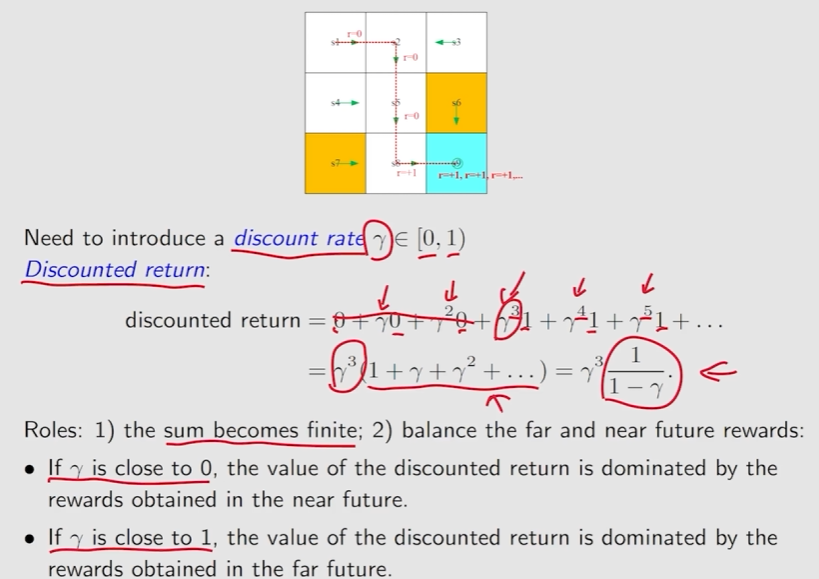 s1 r=0 s2 s3
r=0
s4 s5 s6
r=0
s7 s8 s9
r=+1 r=+1, r=+1, r=+1,...
Need to introduce a discount rate γ ∈ [0, 1)
Discounted return:
discounted return = 0 + γ0 + γ²0 + γ³1 + γ⁴1 + γ⁵1 + ...
= γ³(1 + γ + γ² + ...) = γ³ 1/(1 − γ).
Roles: 1) the sum becomes finite; 2) balance the far and near future rewards:
• If γ is close to 0, the value of the discounted return is dominated by the
rewards obtained in the near future.
• If γ is close to 1, the value of the discounted return is dominated by the
rewards obtained in the far future.